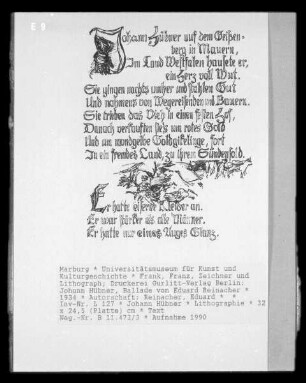 Johann Hübner auf dem Geißen-
berg in Mauern,
Im Land Westfalen hausete er,
ein Herz voll Wut.
Sie gingen nachts umher und stahlen Gut
Und nahmens von Wegereisenden und Bauern.
Sie trieben das Vieh in einen festen Hof,
Danach verkauften sie's um rotes Gold
Und um mondgelbe Goldgikelinge, fort
In ein fremdes Land, zu ihrem Sündensold.
Er hatte eiserne Kleider an.
Er war stärker als alle Männer.
Er hatte nur eines Auges Glanz.
Marburg * Universitätsmuseum für Kunst und
Kulturgeschichte * Frank, Franz, Zeichner und
Lithograph; Druckerei Gurlitt-Verlag Berlin:
Johann Hübner, Ballade von Eduard Reinacher *
1934 * Autorschaft: Reinacher, Eduard * *
Inv-Nr. L 127 * Johann Hübner * Lithographie * 32
x 24,5 (Platte) cm * Text
Neg.-Nr. B 11.473/3 * Aufnahme 1990